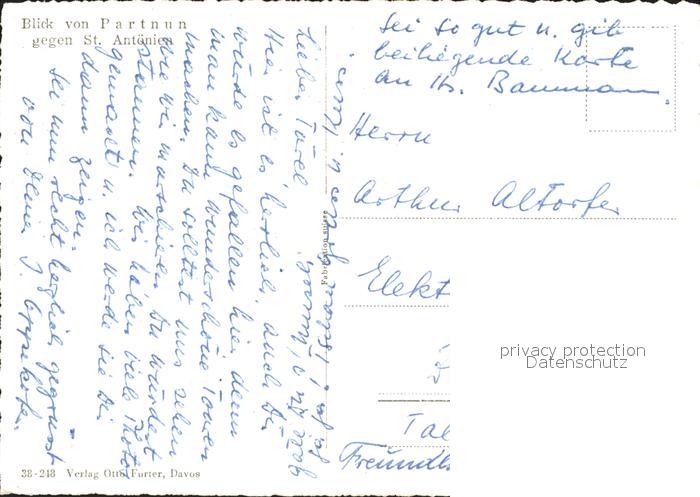 Blick von Partnun
gegen St. Antönien
Sei so gut u. gib
beiliegende Karte
an Hr. Baumann.
Herrn
Arthur Altorfer
Elekt
Tal
Freundl
Lieber Turel
Hier ist es herrlich, auch Dir
würde es gefallen hier, denn
man kann wunderschöne Touren
machen. Du solltest uns sehen
wie wir marschieren. Du würdest
staunen. Wir haben viel Photos
gemacht u. ich werde sie Dir
dann zeigen.
Sei nun recht herzlich gegrüsst
von Deiner J.
Fabrication suisse
38-248 Verlag Otto Furter, Davos
privacy protection
Datenschutz